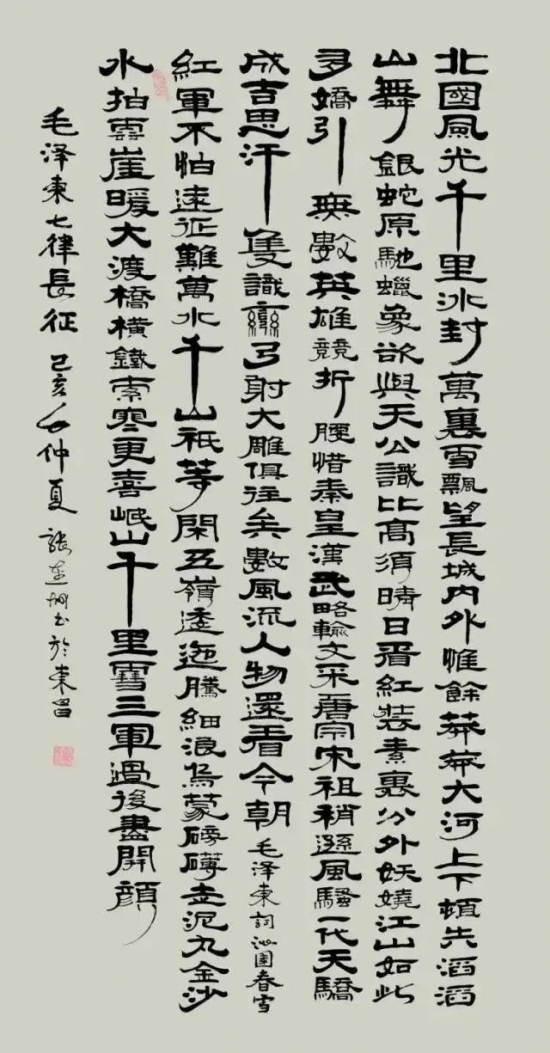 北國風光千里冰封萬裏雪飄望長城內外惟餘莽莽大河上下頓失滔滔
山舞銀蛇原馳蠟象欲與天公識比高須晴日看紅裝素裹分外妖嬈江山如此
多嬌引無數英雄競折腰惜秦皇漢武略輸文采唐宗宋祖稍遜風騷一代天驕
成吉思汗隻識彎弓射大雕俱往矣數風流人物還看今朝 毛泽東詞沁園春雪
紅軍不怕遠征難萬水千山祗等閑五嶺逶迤騰細浪烏蒙磅礴走泥丸金沙
水拍雲崖暖大渡橋橫鐵索寒更喜岷山千里雪三軍過後盡開顏
毛泽東七律長征 己亥年仲夏 張书於東昌